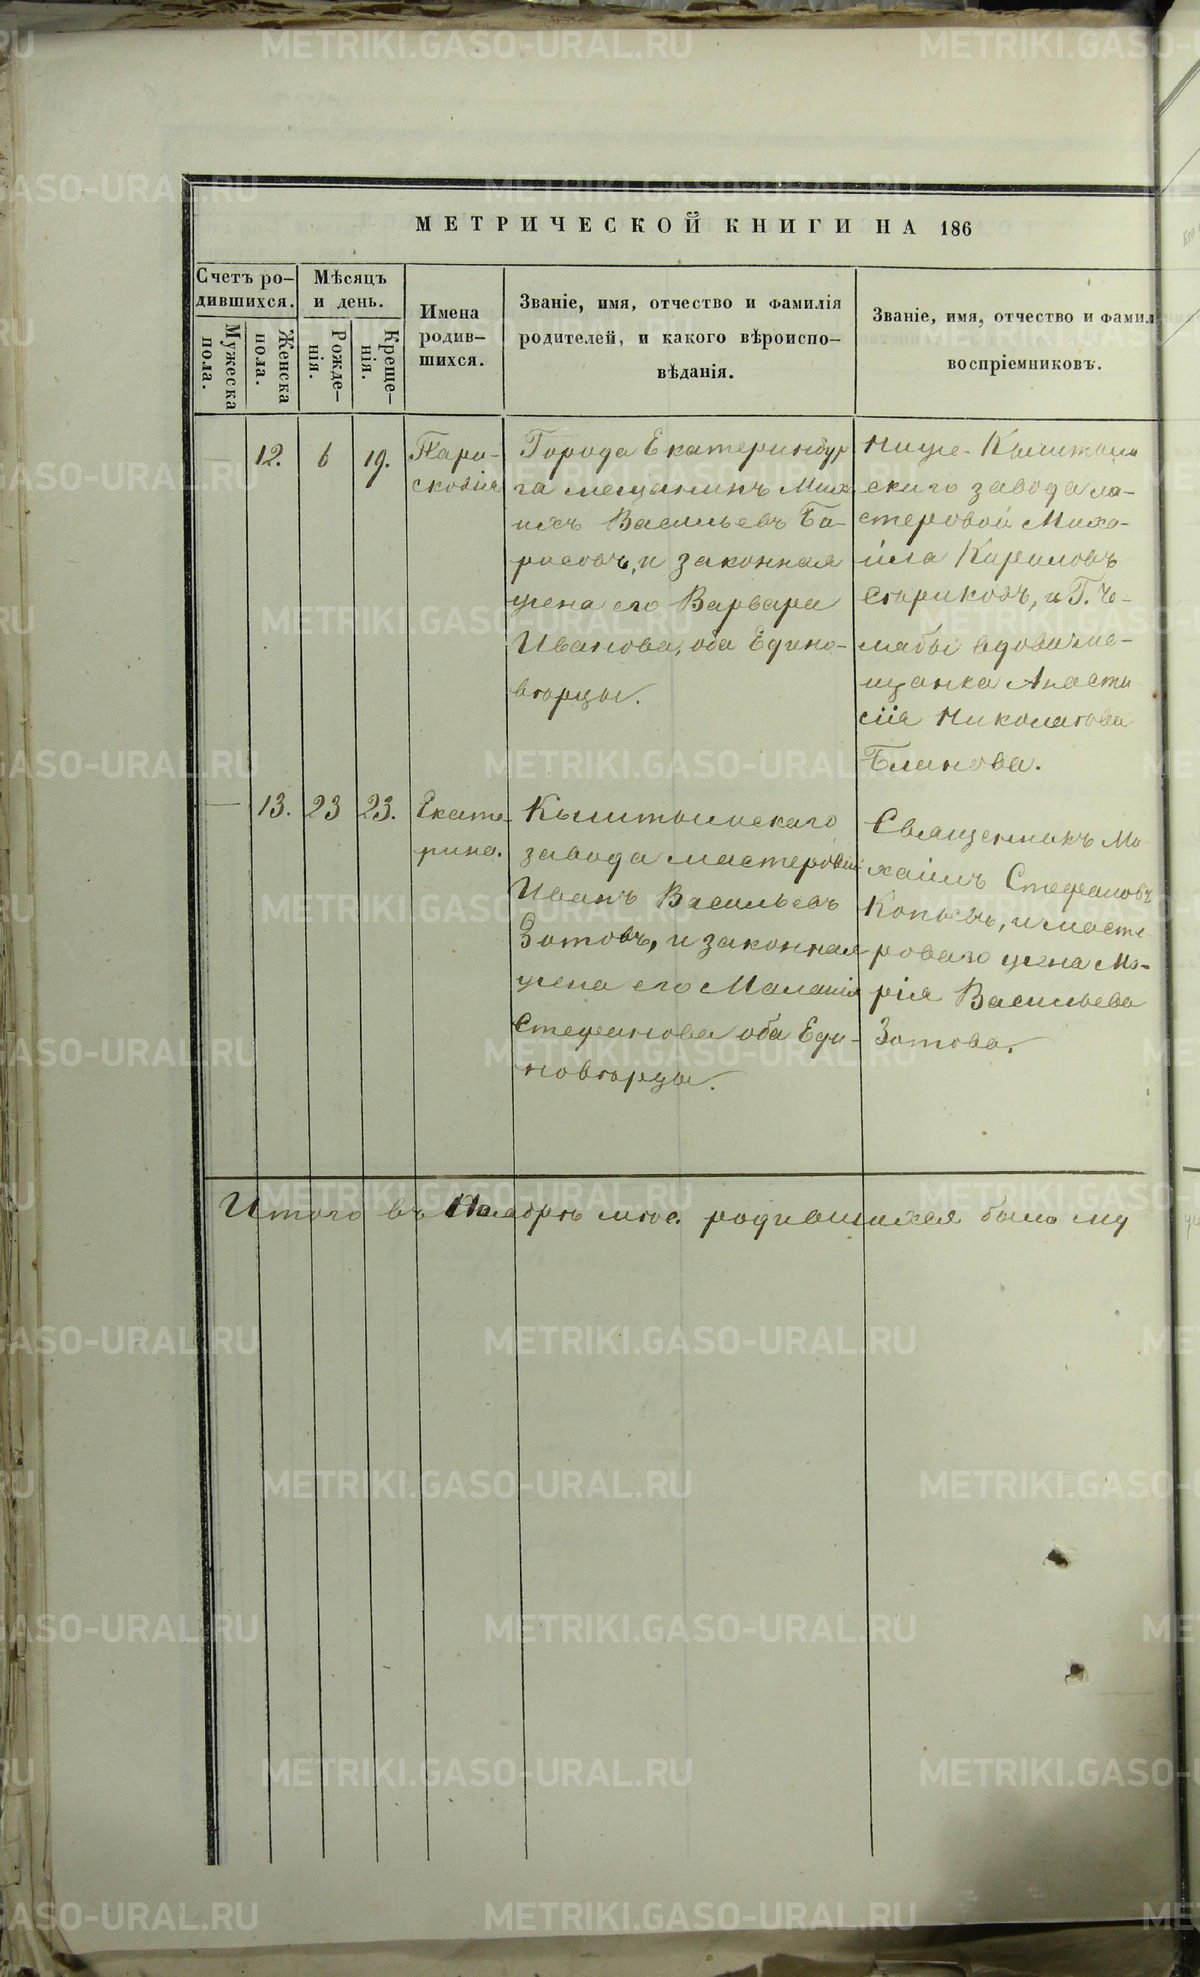 МЕТРИЧЕСКОЙ КНИГИ НА 186
Счетъ ро-
дившихся.
Мужеска
пола.
Женска
пола.
Мѣсяцъ
и день.
Рожде-
нія.
Креще-
нія.
Имена
родив-
шихся.
Званіе, имя, отчество и фамилія
родителей, и какого вѣроиспо-
вѣданія.
Званіе, имя, отчество и фамил
воспріемниковъ.
12.
6
19.
Пара-
сковія
Города Екатеринбур
га мещанинъ
Васильевъ Бо-
росовъ, и законная
жена его Варвара
Иванова, оба Едино-
вѣрцы.
Ниже-Кыштым
скаго завода ма-
стеровой Миха-
ила Кириловъ
Стариковъ, и Г. Че-
лябы вдова ме-
щанка Анаста
сія Николаева
Блинова.
13.
23
23.
Екате
рина.
Кыштымскаго
завода мастеровый
Иванъ Васильевъ
Зотовъ, и законная
жена его Маланія
Стефанова оба Еди-
новѣрцы.
Священникъ Ми
хаилъ Стефановъ
Копыевъ, и масте
роваго жена Ма-
рія Васильева
Зотова.
Итого въ Ноябрѣ мѣс. родившихся было му
METRIKI.GASO-URAL.RU